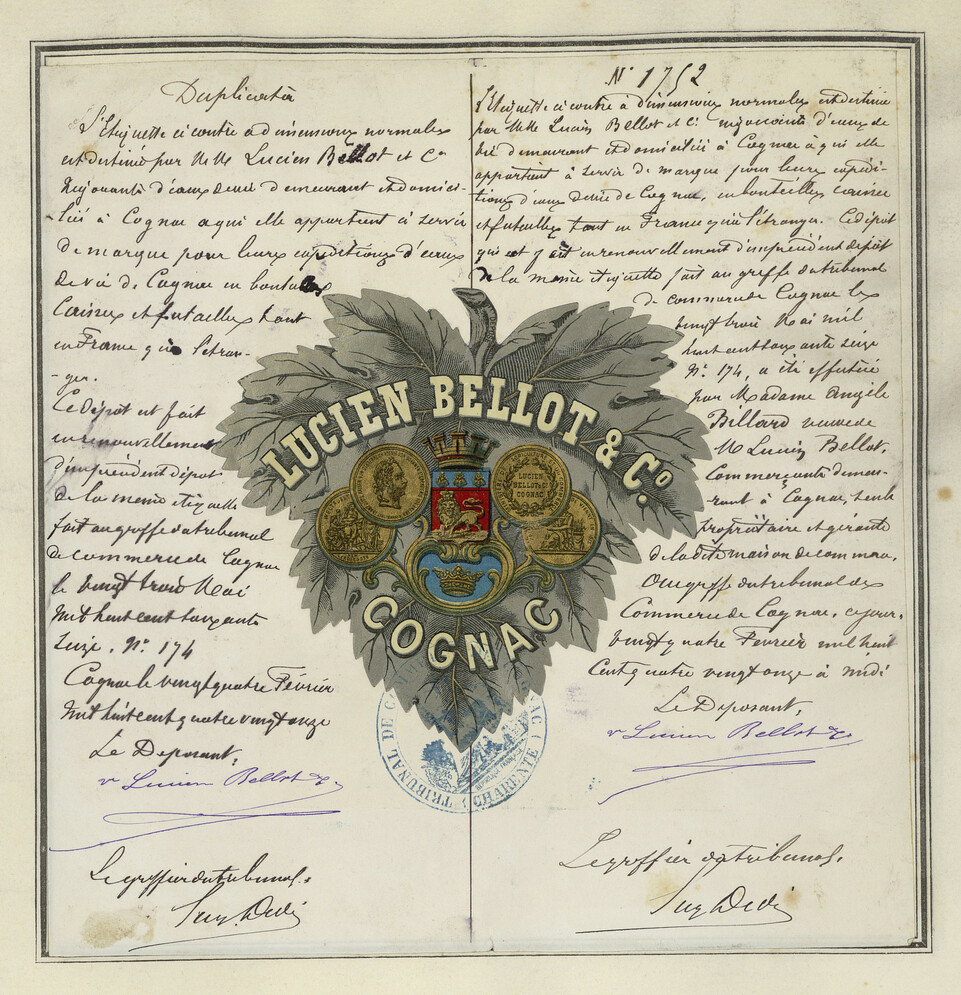 Duplicata
L'Etiquette ci contre à dimensions normales
est destinée par M.M. Lucien Bellot et Co
négociants d'eaux de vie demeurant et domici-
-liés à Cognac a qui elle appartient à servir
de marque pour leurs expéditions d'eaux
de vie de Cognac en bouteilles
Caisses et futailles tant
en France qu'à l'étran-
-ger.
Ce dépôt est fait
en renouvellement
d'un précédent dépôt
de la même étiquette
fait au greffe du tribunal
de commerce de Cognac
le vingt trois Mai
mil huit cent soixante
seize. No. 174
Cognac le vingt quatre Février
mil huit cent quatre vingt onze
Le Deposant,
Lucien Bellot & Co
Le greffier du tribunal.
No 1752
L'Etiquette ci contre à dimensions normales est destinée
par M.M. Lucien Bellot et Co. négociants d'eaux de
vie demeurant et domiciliés à Cognac à qui elle
appartient à servir de marque pour leurs expédi-
tions d'eaux de vie de Cognac, en bouteilles caisses
et futailles tant en France qu'à l'étranger. Ce dépôt
qui est fait en renouvellement d'un précédent dépôt
de la même étiquette fait au greffe du tribunal
de commerce de Cognac le
vingt trois Mai mil
huit cent soixante seize
No. 174, a été effectué
par Madame Angèle
Billard veuve de
M Lucien Bellot,
Commerçante demeu-
rant à Cognac, seule
propriétaire et gérante
de la dite maison de commerce.
Au greffe du tribunal de
Commerce de Cognac, ce jour,
vingt quatre Février mil huit
Cent quatre vingt onze à midi
Le Deposant,
Lucien Bellot & Co
Le greffier du tribunal.
LUCIEN BELLOT & Co.
LUCIEN
BELLOT & Co
COGNAC
COGNAC
TRIBUNAL DE
CHARENTE